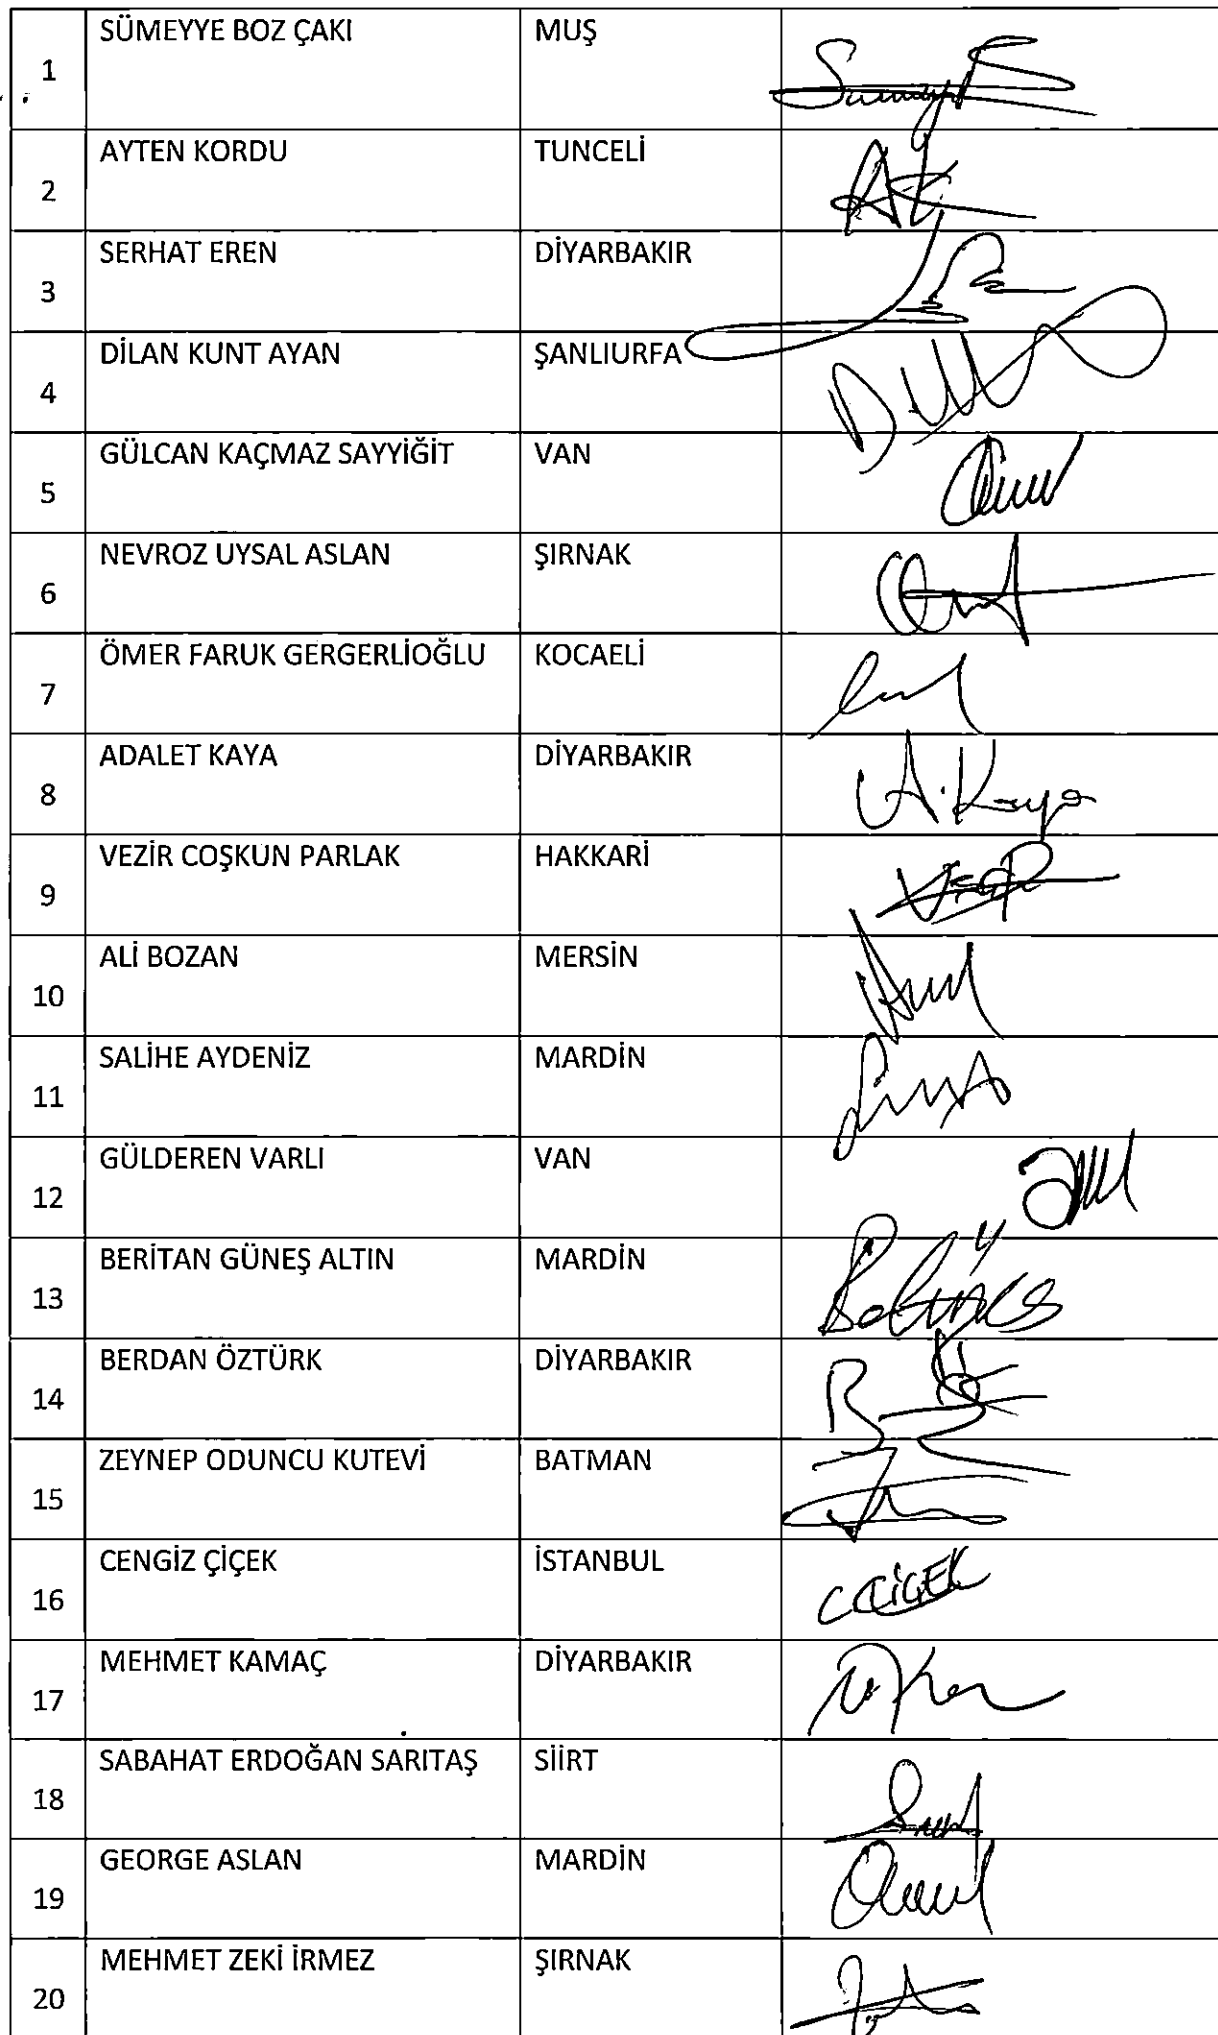 1 SÜMEYYE BOZ ÇAKI MUŞ
2 AYTEN KORDU TUNCELİ
3 SERHAT EREN DİYARBAKIR
4 DİLAN KUNT AYAN ŞANLIURFA
5 GÜLCAN KAÇMAZ SAYYİĞİT VAN
6 NEVROZ UYSAL ASLAN ŞIRNAK
7 ÖMER FARUK GERGERLİOĞLU KOCAELİ
8 ADALET KAYA DİYARBAKIR A.Kaya
9 VEZİR COŞKUN PARLAK HAKKARİ
10 ALİ BOZAN MERSİN
11 SALİHE AYDENİZ MARDİN
12 GÜLDEREN VARLI VAN
13 BERİTAN GÜNEŞ ALTIN MARDİN
14 BERDAN ÖZTÜRK DİYARBAKIR
15 ZEYNEP ODUNCU KUTEVİ BATMAN
16 CENGİZ ÇİÇEK İSTANBUL C ÇİÇEK
17 MEHMET KAMAÇ DİYARBAKIR
18 SABAHAT ERDOĞAN SARITAŞ SİİRT
19 GEORGE ASLAN MARDİN
20 MEHMET ZEKİ İRMEZ ŞIRNAK